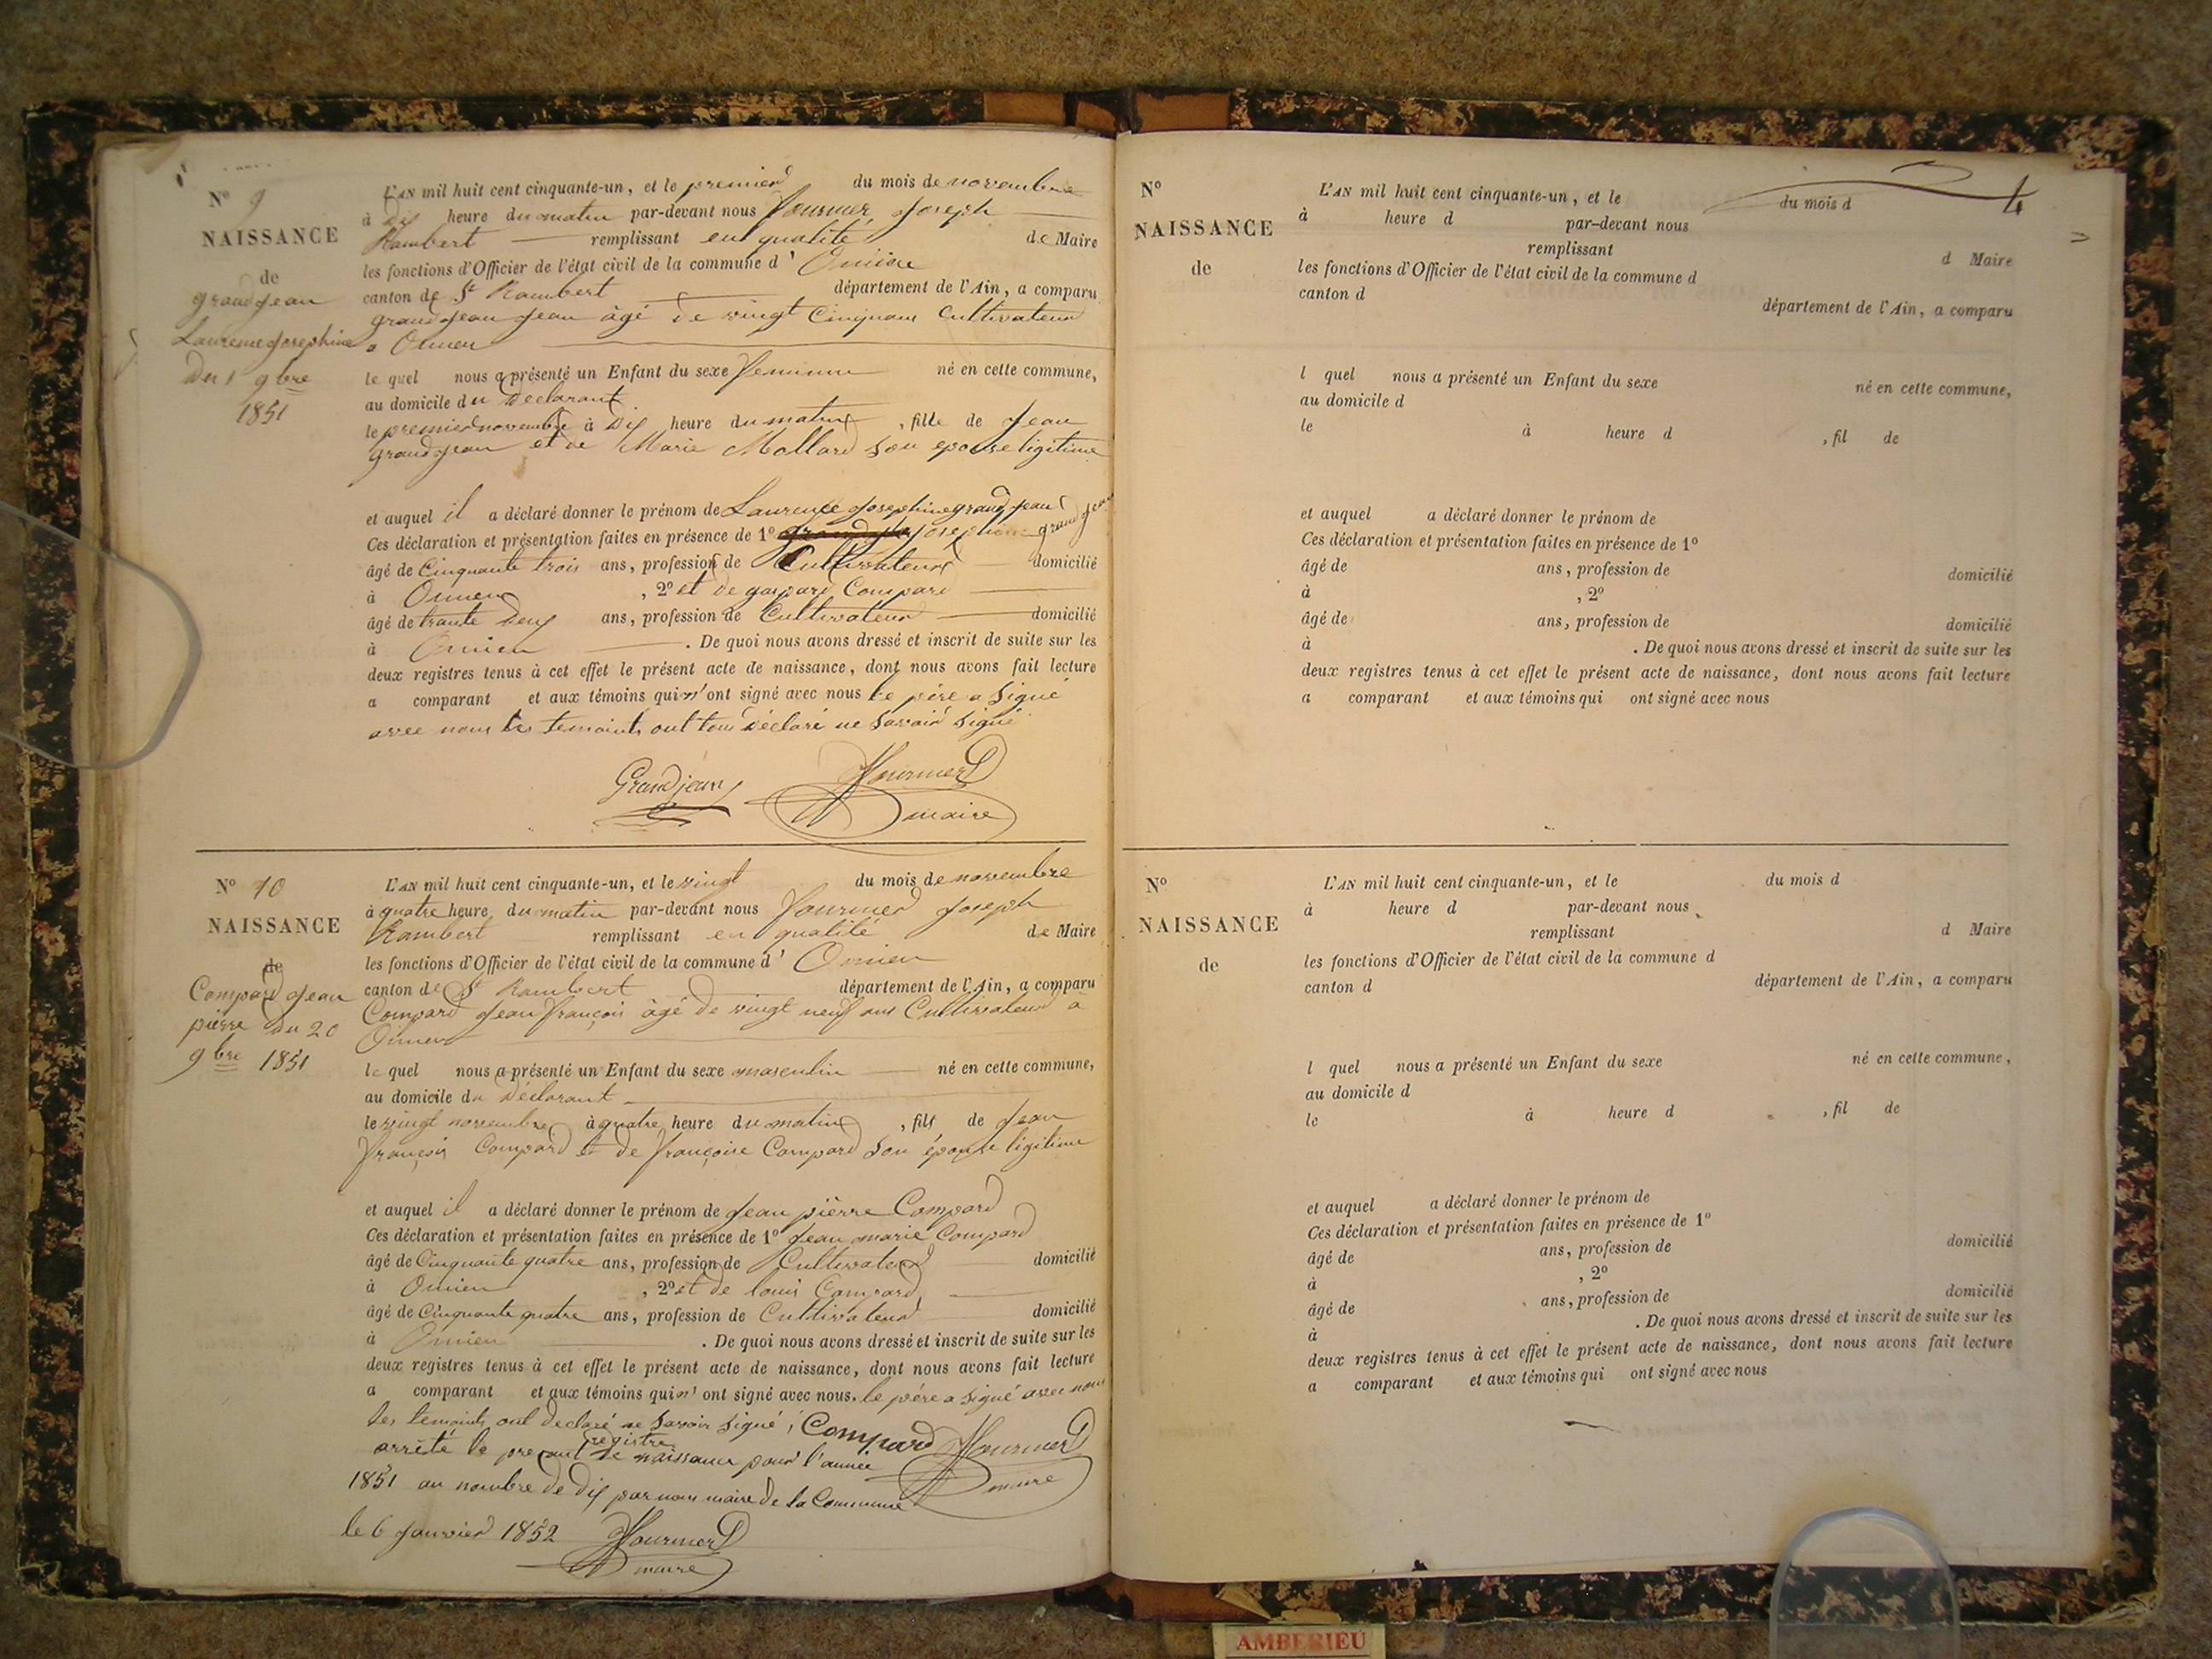 N° 9
NAISSANCE
de
grandjean
Laurence Josephine
Du 1 9bre
1851
L'AN mil huit cent cinquante-un, et le premier du mois de novembre
à Dix heure du matin par-devant nous fournier Joseph
Rambert remplissant en qualité de Maire
les fonctions d'Officier de l'état civil de la commune d' Oncieu
canton de St Rambert département de l'Ain, a comparu
grandjean Jean âgé de vingt Cinq ans Cultivateur
a Oncieu
le quel nous a présenté un Enfant du sexe feminin né en cette commune,
au domicile du Déclarant
le premier novembre à Dix heure du matin, fille de Jean
grandjean et de Marie Mollard son epouse ligitime
et auquel il a déclaré donner le prénom de Laurence Josephine grandjean
Ces déclaration et présentation faites en présence de 1° grandjean
âgé de Cinquante trois ans, profession de Cultivateur domicilié
à Oncieu, 2° et de gaspard Compard
âgé de trante Deux ans, profession de Cultivateur domicilié
à Oncieu. De quoi nous avons dressé et inscrit de suite sur les
deux registres tenus à cet effet le présent acte de naissance, dont nous avons fait lecture
a comparant et aux témoins qui n'ont signé avec nous Le père a Signé
avec nous les temoints ont tous Déclaré ne Savoir Signé
Grandjean fournier
maire
N° 10
NAISSANCE
de
Compard Jean
pièrre du 20
9bre 1851
L'AN mil huit cent cinquante-un, et le vingt du mois de novembre
à quatre heure du matin par-devant nous fournier Joseph
Rambert remplissant en qualité de Maire
les fonctions d'Officier de l'état civil de la commune d' Oncieu
canton de St Rambert département de l'Ain, a comparu
Compard Jean françois âgé de vingt neuf ans Cultivateur à
Oncieu
le quel nous a présenté un Enfant du sexe masculin né en cette commune,
au domicile du Déclarant
le vingt novembre à quatre heure du matin, fils de Jean
françois Compard et de françoise Compard Son épouse ligitime
et auquel il a déclaré donner le prénom de Jean pièrre Compard
Ces déclaration et présentation faites en présence de 1° Jean marie Compard
âgé de Cinquante quatre ans, profession de Cultivateur domicilié
à Oncieu, 2° et de louis Compard
âgé de Cinquante quatre ans, profession de Cultivateur domicilié
à Oncieu. De quoi nous avons dressé et inscrit de suite sur les
deux registres tenus à cet effet le présent acte de naissance, dont nous avons fait lecture
a comparant et aux témoins qui n'ont signé avec nous. le père a Signé avec nous
les temoints ont declaré ne Savoir Signé, Compard fournier
registre
arrêté le présant de naissance pour l'année
maire
1851 au nombre de Dix par nous maire de la Commune
le 6 Janvier 1852 fournier
maire
4
N°
NAISSANCE
de
L'AN mil huit cent cinquante-un, et le du mois d
à heure d par-devant nous
remplissant d Maire
les fonctions d'Officier de l'état civil de la commune d
canton d département de l'Ain, a comparu
l quel nous a présenté un Enfant du sexe né en cette commune,
au domicile d
le à heure d , fil de
et auquel a déclaré donner le prénom de
Ces déclaration et présentation faites en présence de 1°
âgé de ans, profession de domicilié
à , 2°
âgé de ans, profession de domicilié
à . De quoi nous avons dressé et inscrit de suite sur les
deux registres tenus à cet effet le présent acte de naissance, dont nous avons fait lecture
a comparant et aux témoins qui ont signé avec nous
N°
NAISSANCE
de
L'AN mil huit cent cinquante-un, et le du mois d
à heure d par-devant nous
remplissant d Maire
les fonctions d'Officier de l'état civil de la commune d
canton d département de l'Ain, a comparu
l quel nous a présenté un Enfant du sexe né en cette commune,
au domicile d
le à heure d , fil de
et auquel a déclaré donner le prénom de
Ces déclaration et présentation faites en présence de 1°
âgé de ans, profession de domicilié
à , 2°
âgé de ans, profession de domicilié
à . De quoi nous avons dressé et inscrit de suite sur les
deux registres tenus à cet effet le présent acte de naissance, dont nous avons fait lecture
a comparant et aux témoins qui ont signé avec nous
AMBERIEU